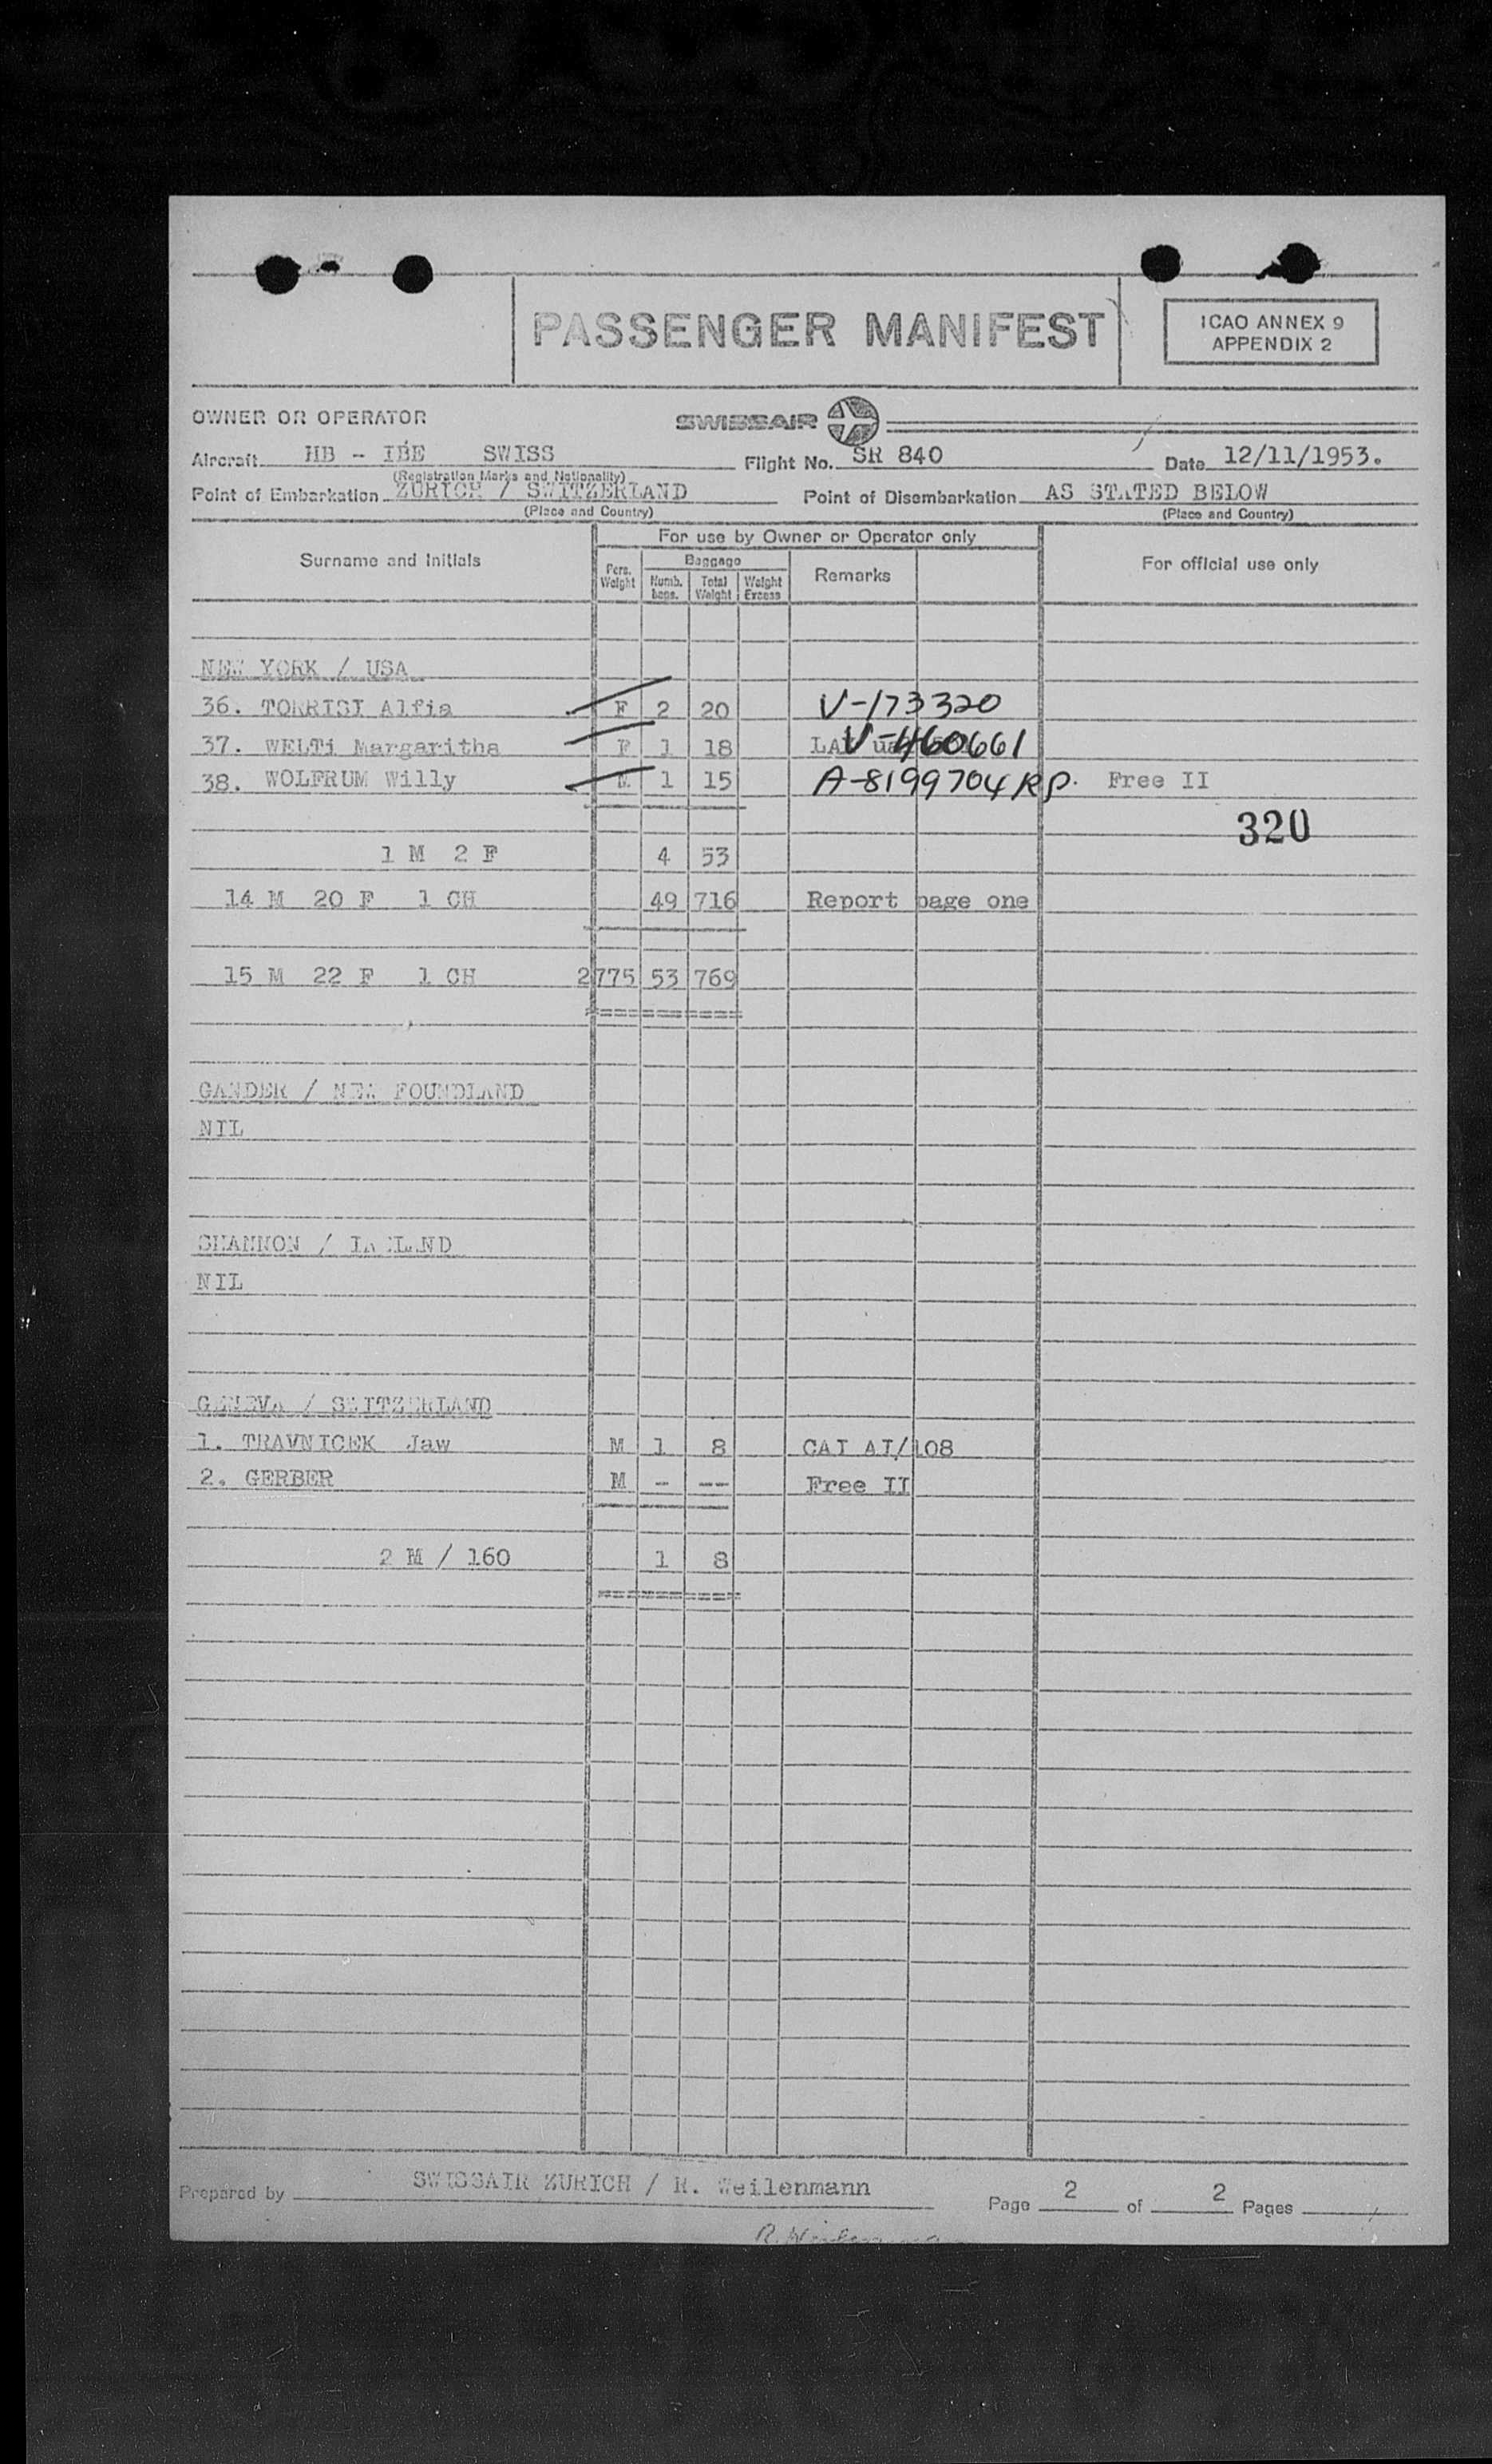 PASSENGER MANIFEST
ICAO ANNEX 9
APPENDIX 2
OWNER OR OPERATOR SWISSAIR
Aircraft HB - IBE SWISS Flight No. SR 840 Date 12/11/1953.
(Registration Marks and Nationality)
Point of Embarkation ZURICH / SWITZERLAND Point of Disembarkation AS STATED BELOW
(Place and Country) (Place and Country)
For use by Owner or Operator only
Surname and Initials Pers. Weight Baggage Numb. bags. Total Weight Weight Excess Remarks For official use only
NEW YORK / USA
36. TORRISI Alfia F 2 20 V-173320
37. WELTi Margaritha F 1 18 V-460661
38. WOLFRUM Willy M 1 15 A-8199704 RP. Free II
320
1 M 2 F 4 53
14 M 20 F 1 CH 49 716 Report page one
15 M 22 F 1 CH 2775 53 769
==========
GANDER / NEW FOUNDLAND
NIL
SHANNON / IRELAND
NIL
GENEVA / SWITZERLAND
1. TRAVNICEK Jaw M 1 8 CAI AI/108
2. GERBER M - -- Free II
2 M / 160 1 8
==========
Prepared by SWISSAIR ZURICH / R. Weilenmann Page 2 of 2 Pages
R. Weilenmann